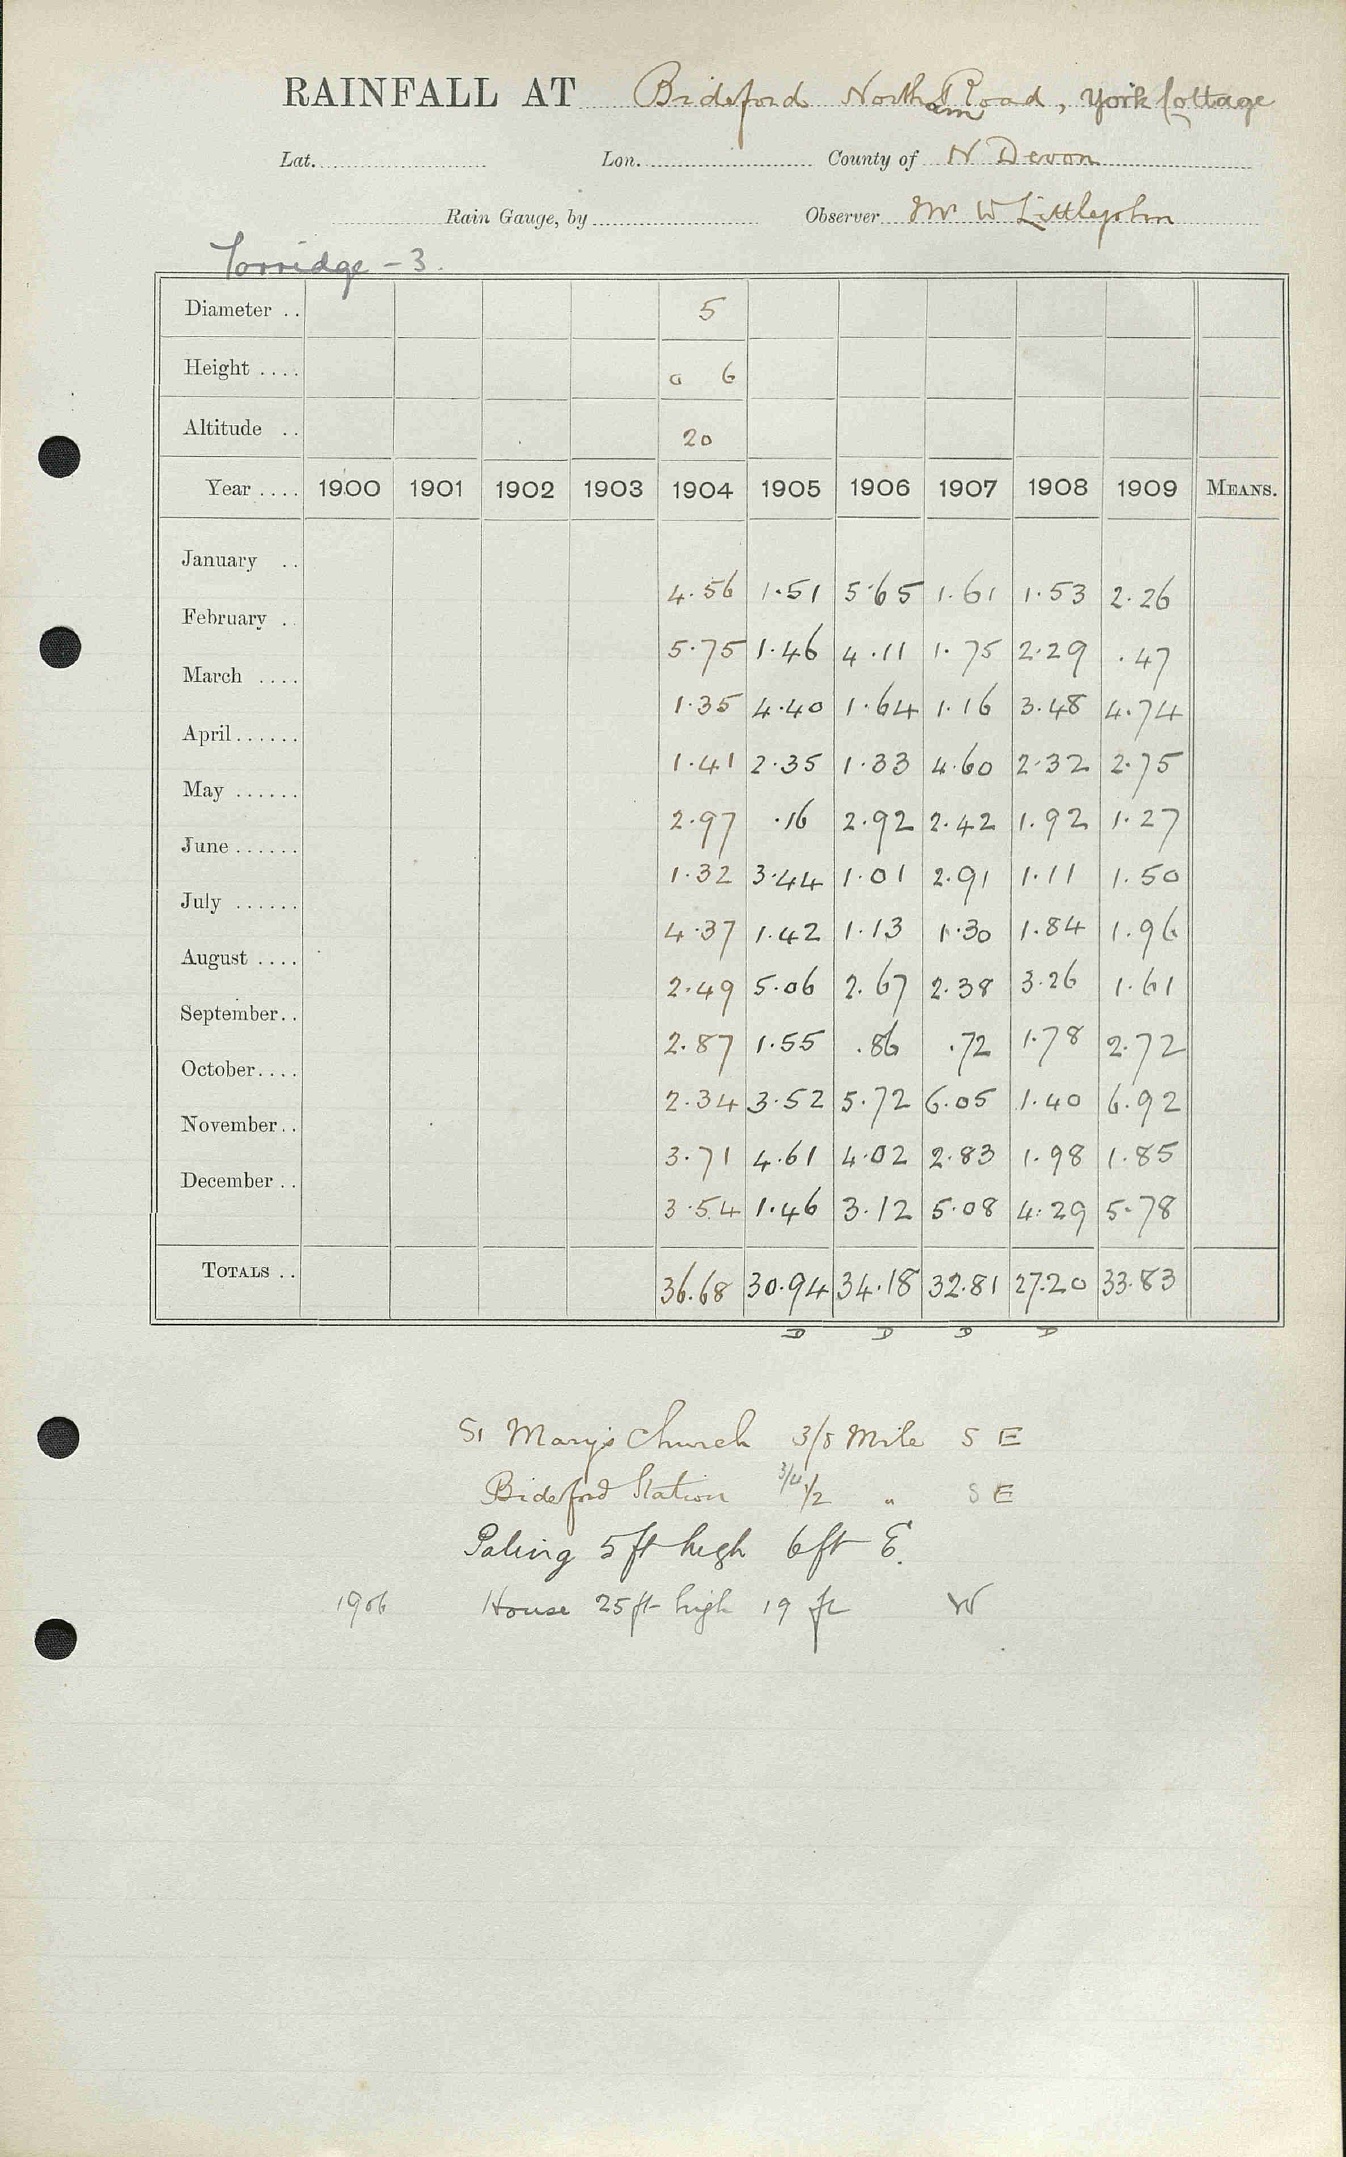 RAINFALL AT Bideford Northam Road, York Cottage
Lat. Lon. County of N Devon
Rain Gauge, by Observer Mr W Littlejohn
Torridge - 3.
Diameter .. 5
Height .... 0 6
Altitude .. 20
Year .... 1900 1901 1902 1903 1904 1905 1906 1907 1908 1909 MEANS.
January .. 4.56 1.51 5.65 1.61 1.53 2.26
February . 5.75 1.46 4.11 1.75 2.29 .47
March .... 1.35 4.40 1.64 1.16 3.48 4.74
April...... 1.41 2.35 1.33 4.60 2.32 2.75
May ...... 2.97 .16 2.92 2.42 1.92 1.27
June ...... 1.32 3.44 1.01 2.91 1.11 1.50
July ...... 4.37 1.42 1.13 1.30 1.84 1.96
August .... 2.49 5.06 2.67 2.38 3.26 1.61
September.. 2.87 1.55 .86 .72 1.78 2.72
October.... 2.34 3.52 5.72 6.05 1.40 6.92
November.. 3.71 4.61 4.02 2.83 1.98 1.85
December .. 3.54 1.46 3.12 5.08 4.29 5.78
TOTALS .. 36.68 30.94 34.18 32.81 27.20 33.83
D D D D
St Mary's Church 3/8 Mile S E
Bideford Station 3/4 1/2 " S E
Paling 5 ft high 6 ft E.
1906 House 25 ft high 19 ft W